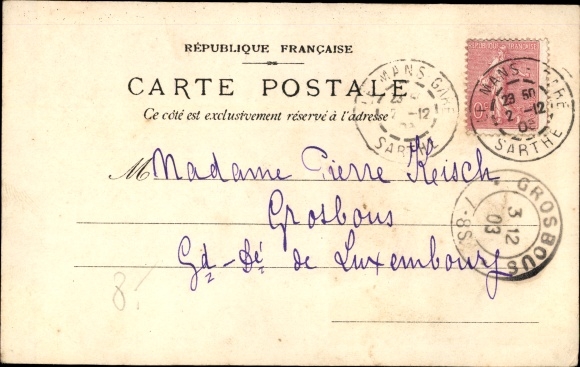 RÉPUBLIQUE FRANÇAISE
CARTE POSTALE
Ce côté est exclusivement réservé à l'adresse
MANS-GARE
2-12
SARTHE
MANS-GARE
23 50
2-12
03
SARTHE
Madame Pierre Reisch
Grosbous
Gd-Dé de Luxembourg
GROSBOUS
3 12
03
7-8S
8.-